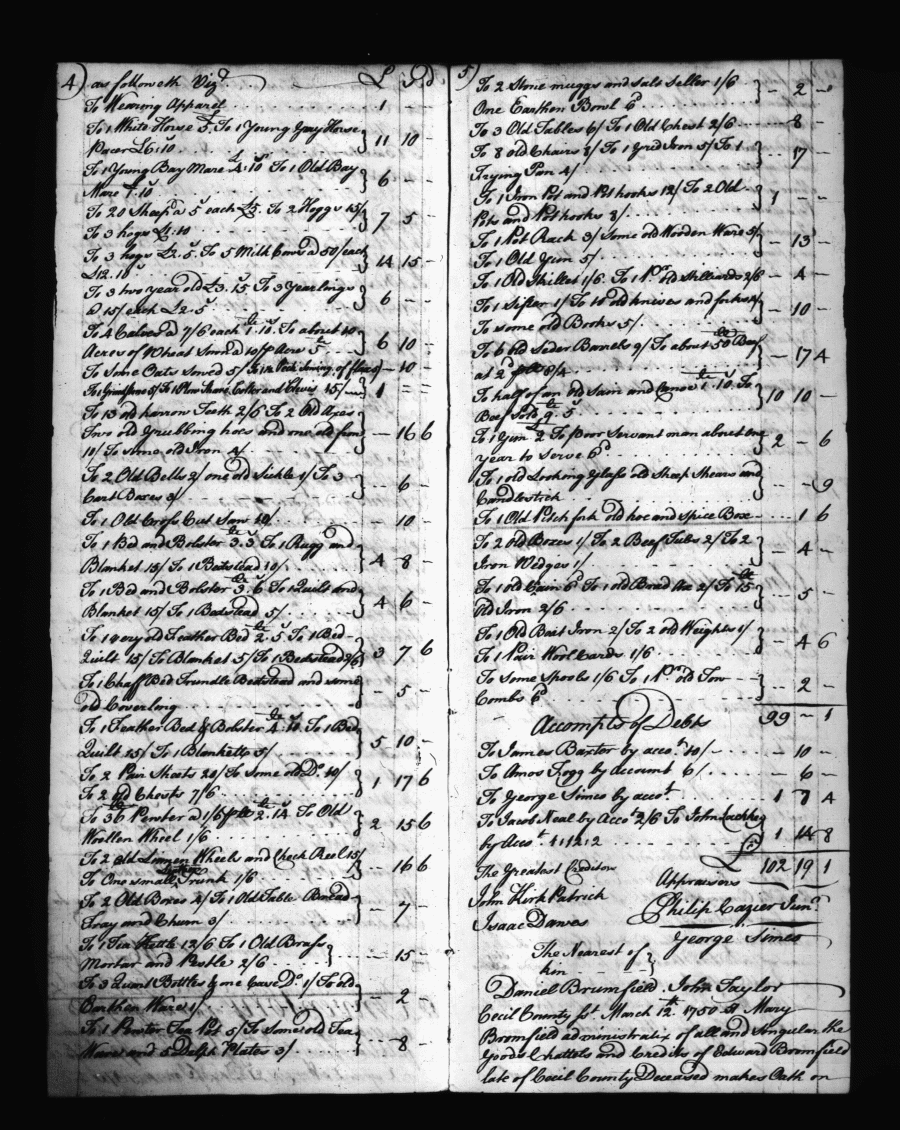 4) as followeth Vizt £ S D
To Wearing Apparel 1 - -
To 1 White Horse 5. To 1 Young Gray Horse
Pacer £6:10 11 10 -
To 1 Young Bay Mare 4:10 To 1 Old Bay
Mare 1.10 6 - -
To 20 Sheep a 5 each £5. To 2 Hoggs 15/
To 3 hogs £1:10 7 5 -
To 3 hogs £2.5. To 5 Milk Cows a 50/ each
£12.10 14 15 -
To 3 two year old £3.15 To 3 Yearlings
a 15/ each £2.5 6 - -
To 4 Calves a 7/6 each 1.10. To about 10
Acres of Wheat Sowed a 10/ p Acre 5 6 10 -
To Some Oats sowed 5/ To Sowing of flax - 10 -
To 1 Grindstone 5/ To 1 Plow Share Colter and Clevis 15/ 1 = =
To 13 old harrow Teeth 2/6 To 2 Old Axes
Two old grubbing hoes and one old
10/ To some old Iron 4/ - 16 6
To 2 Old Bells 2/ one old Sickle 1/ To 3
Cart Boxes 3/ - 6 -
To 1 Old Cross Cut Saw 10/ - 10 -
To 1 Bed and Bolster 3.3 To 1 Rugg and
Blanket 15/ To 1 Bedstead 10/ 4 8 -
To 1 Bed and Bolster 3.6 To 1 Quilt and
Blanket 15/ To 1 Bedstead 5/ 4 6 -
To 1 very old Feather Bed 2.5 To 1 Bed
Quilt 15/ To Blanket 5/ To 1 Bedstead 2/6 3 7 6
To 1 Chaff Bed Trundle Bedstead and some
old Coverlong - 5 -
To 1 Feather Bed & Bolster 4.10 To 1 Bed
Quilt 15/ To 1 Blanketts 5/ 5 10 -
To 2 Pair Sheets 20/ To Some old Do 10/
To 2 old Chests 7/6 1 17 6
To 36 Pewter a 1/6 p 2.14 To Old
Woollen Wheel 1/6 2 15 6
To 2 old Linnen Wheels and Check Reel 15/
To One small Trunk 1/6 - 16 6
To 2 Old Boxes 4/ To 1 Old Table Bread
Tray and Churn 3/ - 7 -
To 1 Tea Kettle 12/6 To 1 Old Brass
Mortar and Pestle 2/6 - 15 -
To 3 Quart Bottles & one Case Do 1/ To old
Earthen Ware 1/ - 2 -
To 1 Pewter Tea Pot 5/ To Some old Tea
Ware and 5 Delph Plates 3/ - 8 -
5) To 2 Stone muggs and Salt Seller 1/6
One Earthen Bowl 6d - 2 -
To 3 Old Tables 6/ To 1 Old Chest 2/6 - 8 -
To 8 old Chairs 8/ To 1 Iron 5/ To 1
Frying Pan 4/ - 17 -
To 1 Iron Pot and Pot hooks 12/ To 2 Old
Pots and Pothooks 8/ 1 - -
To 1 Pot Rack 3/ Some old Wooden Ware 5/
To 1 Old Gun 5/ - 13 -
To 1 Old Skillet 1/6 To 1 Pr old Stilliards 2/6 - 4 -
To 1 Sifter 1/ To 10 old knives and forks 4/
To some old Books 5/ - 10 -
To 6 old Seder Barrels 9/ To about 50 Beef
at 2d p 8/4 - 17 4
To half of an old Sain and Canoe 1.10 To
Beef Sold 9.5 10 10 -
To 1 Gun 2 To poor Servant man about one
year to serve 6d 2 - 6
To 1 old Looking Glass old Sheep Shears and
Candlestick - - 9
To 1 Old Pitch fork old hoe and Spice Box - 1 6
To 2 old Boxes 1/ To 2 Beef Tubs 2/ To 2
Iron Wedges 1/ - 4 -
To 1 old 6d To 1 old Broad Axe 2/ To 15
Old Iron 2/6 - 5 -
To 1 Old Bait Iron 2/ To 2 old Weights 1/
To 1 Pair Wool Cards 1/6 - 4 6
To Some Spools 1/6 To 1 Pr old Tow
Combs 6d - 2 -
Accompts of Debts 99 - 1
To James Baxter by acco.t 10/ - 10 -
To Amos Fogg by account 6/ - 6 -
To George Simco by acco.t 1 7 4
To Jacob Neal by Acco.t 2/6 To John
by Acco.t 1:12:2 1 14 8
£ 102 19 1
The Greatest Creditors Appraisers
John Kirk Patrick Philip Cazier Junr
Isaac Dawes George Simco
The Nearest of
kin
Daniel Brumfield John Taylor
Cecil County ss. March 12th 1750 Mary
Bromfield administratix of all and Singular the
goods Chattels and Credits of Edward Bromfield
late of Cecil County Deceased makes Oath on